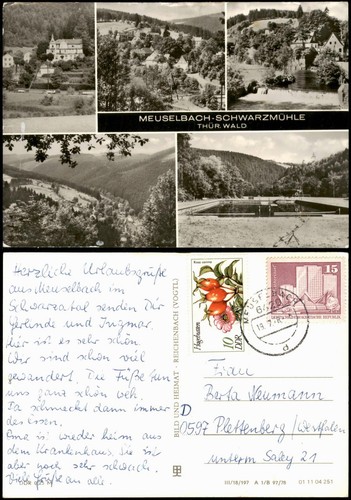 MEUSELBACH-SCHWARZMÜHLE
THÜR. WALD
Herzliche Urlaubsgrüße
aus Meuselbach im
Schwarzatal senden Dir
Gerlinde und Ingmar.
hier ist es sehr schön
Wir sind schon viel
gewandert. Die Füße tun
uns ganz schön weh.
Da schmeckt dann immer
das Essen.
Oma ist wieder heim aus
dem Krankenhaus. Sie ist
aber noch sehr schwach.
Viel Grüße an alle
BILD UND HEIMAT · REICHENBACH (VOGTL)
Rosa canina
Hagebutten
10
DDR
15
Frau
Berta Neumann
D
0597 Plettenberg/Westfalen
unterm Saley 21
01 11 04 251